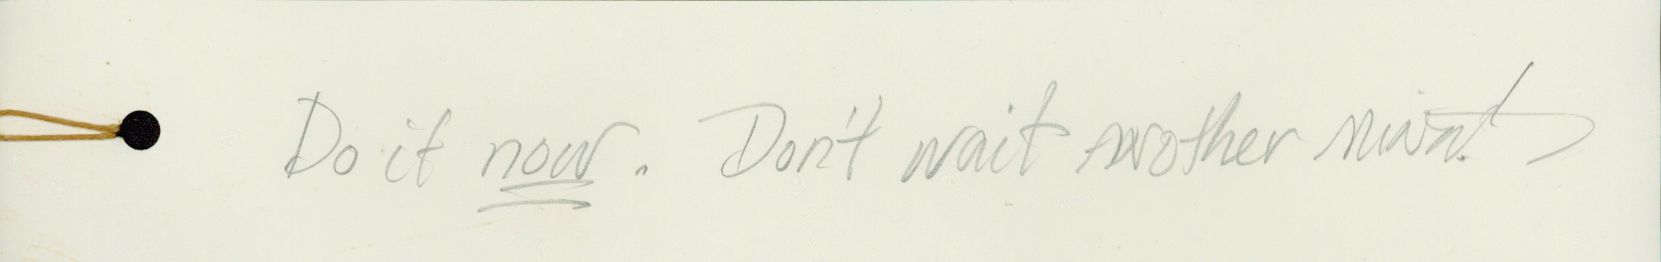 Do it now. Don't wait another minut